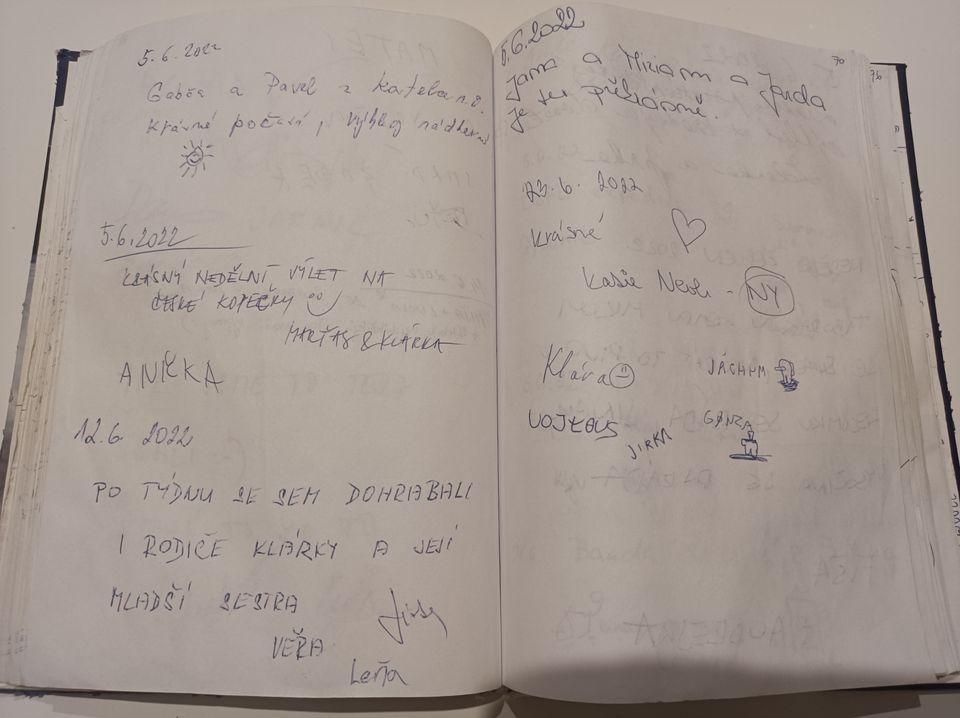 5.6.2022
Gabča a Pavel z Kateba n.8.
Krásné počasí, výhled nádherný
5.6.2022
KRÁSNÝ NEDĚLNÍ VÝLET NA
ČESKÉ KOPEČKY
MARŤAS & KLÁRKA
ANIČKA
12.6 2022
PO TÝDNU SE SEM DOHRABALI
I RODIČE KLÁRKY A JEJÍ
MLADŠÍ SESTRA
VĚRA
Leňa
5.6.2022
Jana a Miriam a Janda
je tu překrásně.
23.6. 2022
Krásné
- NY
Klára
JÁCHYM
VOJTOUS
JIRKA
GANZA
70